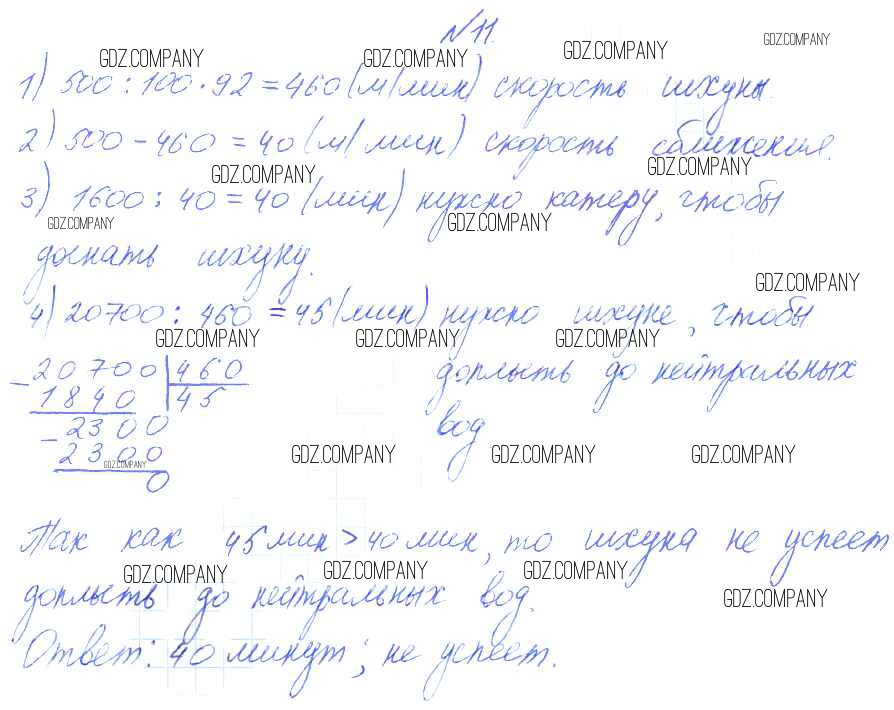 №11.
GDZ.COMPANY GDZ.COMPANY GDZ.COMPANY GDZ.COMPANY
1) 500 : 100 · 92 = 460 (м/мин) скорость шхуны.
2) 500 - 460 = 40 (м/мин) скорость сближения.
GDZ.COMPANY GDZ.COMPANY
3) 1600 : 40 = 40 (мин) нужно катеру, чтобы
GDZ.COMPANY GDZ.COMPANY
догнать шхуну.
GDZ.COMPANY
4) 20700 : 460 = 45 (мин) нужно шхуне, чтобы
GDZ.COMPANY GDZ.COMPANY GDZ.COMPANY
- 20700 | 460 доплыть до нейтральных
1840 45 вод
- 2300
2300 GDZ.COMPANY GDZ.COMPANY GDZ.COMPANY
GDZ.COMPANY
0
Так как 45 мин > 40 мин, то шхуна не успеет
GDZ.COMPANY GDZ.COMPANY GDZ.COMPANY
доплыть до нейтральных вод.
GDZ.COMPANY
Ответ: 40 минут; не успеет.